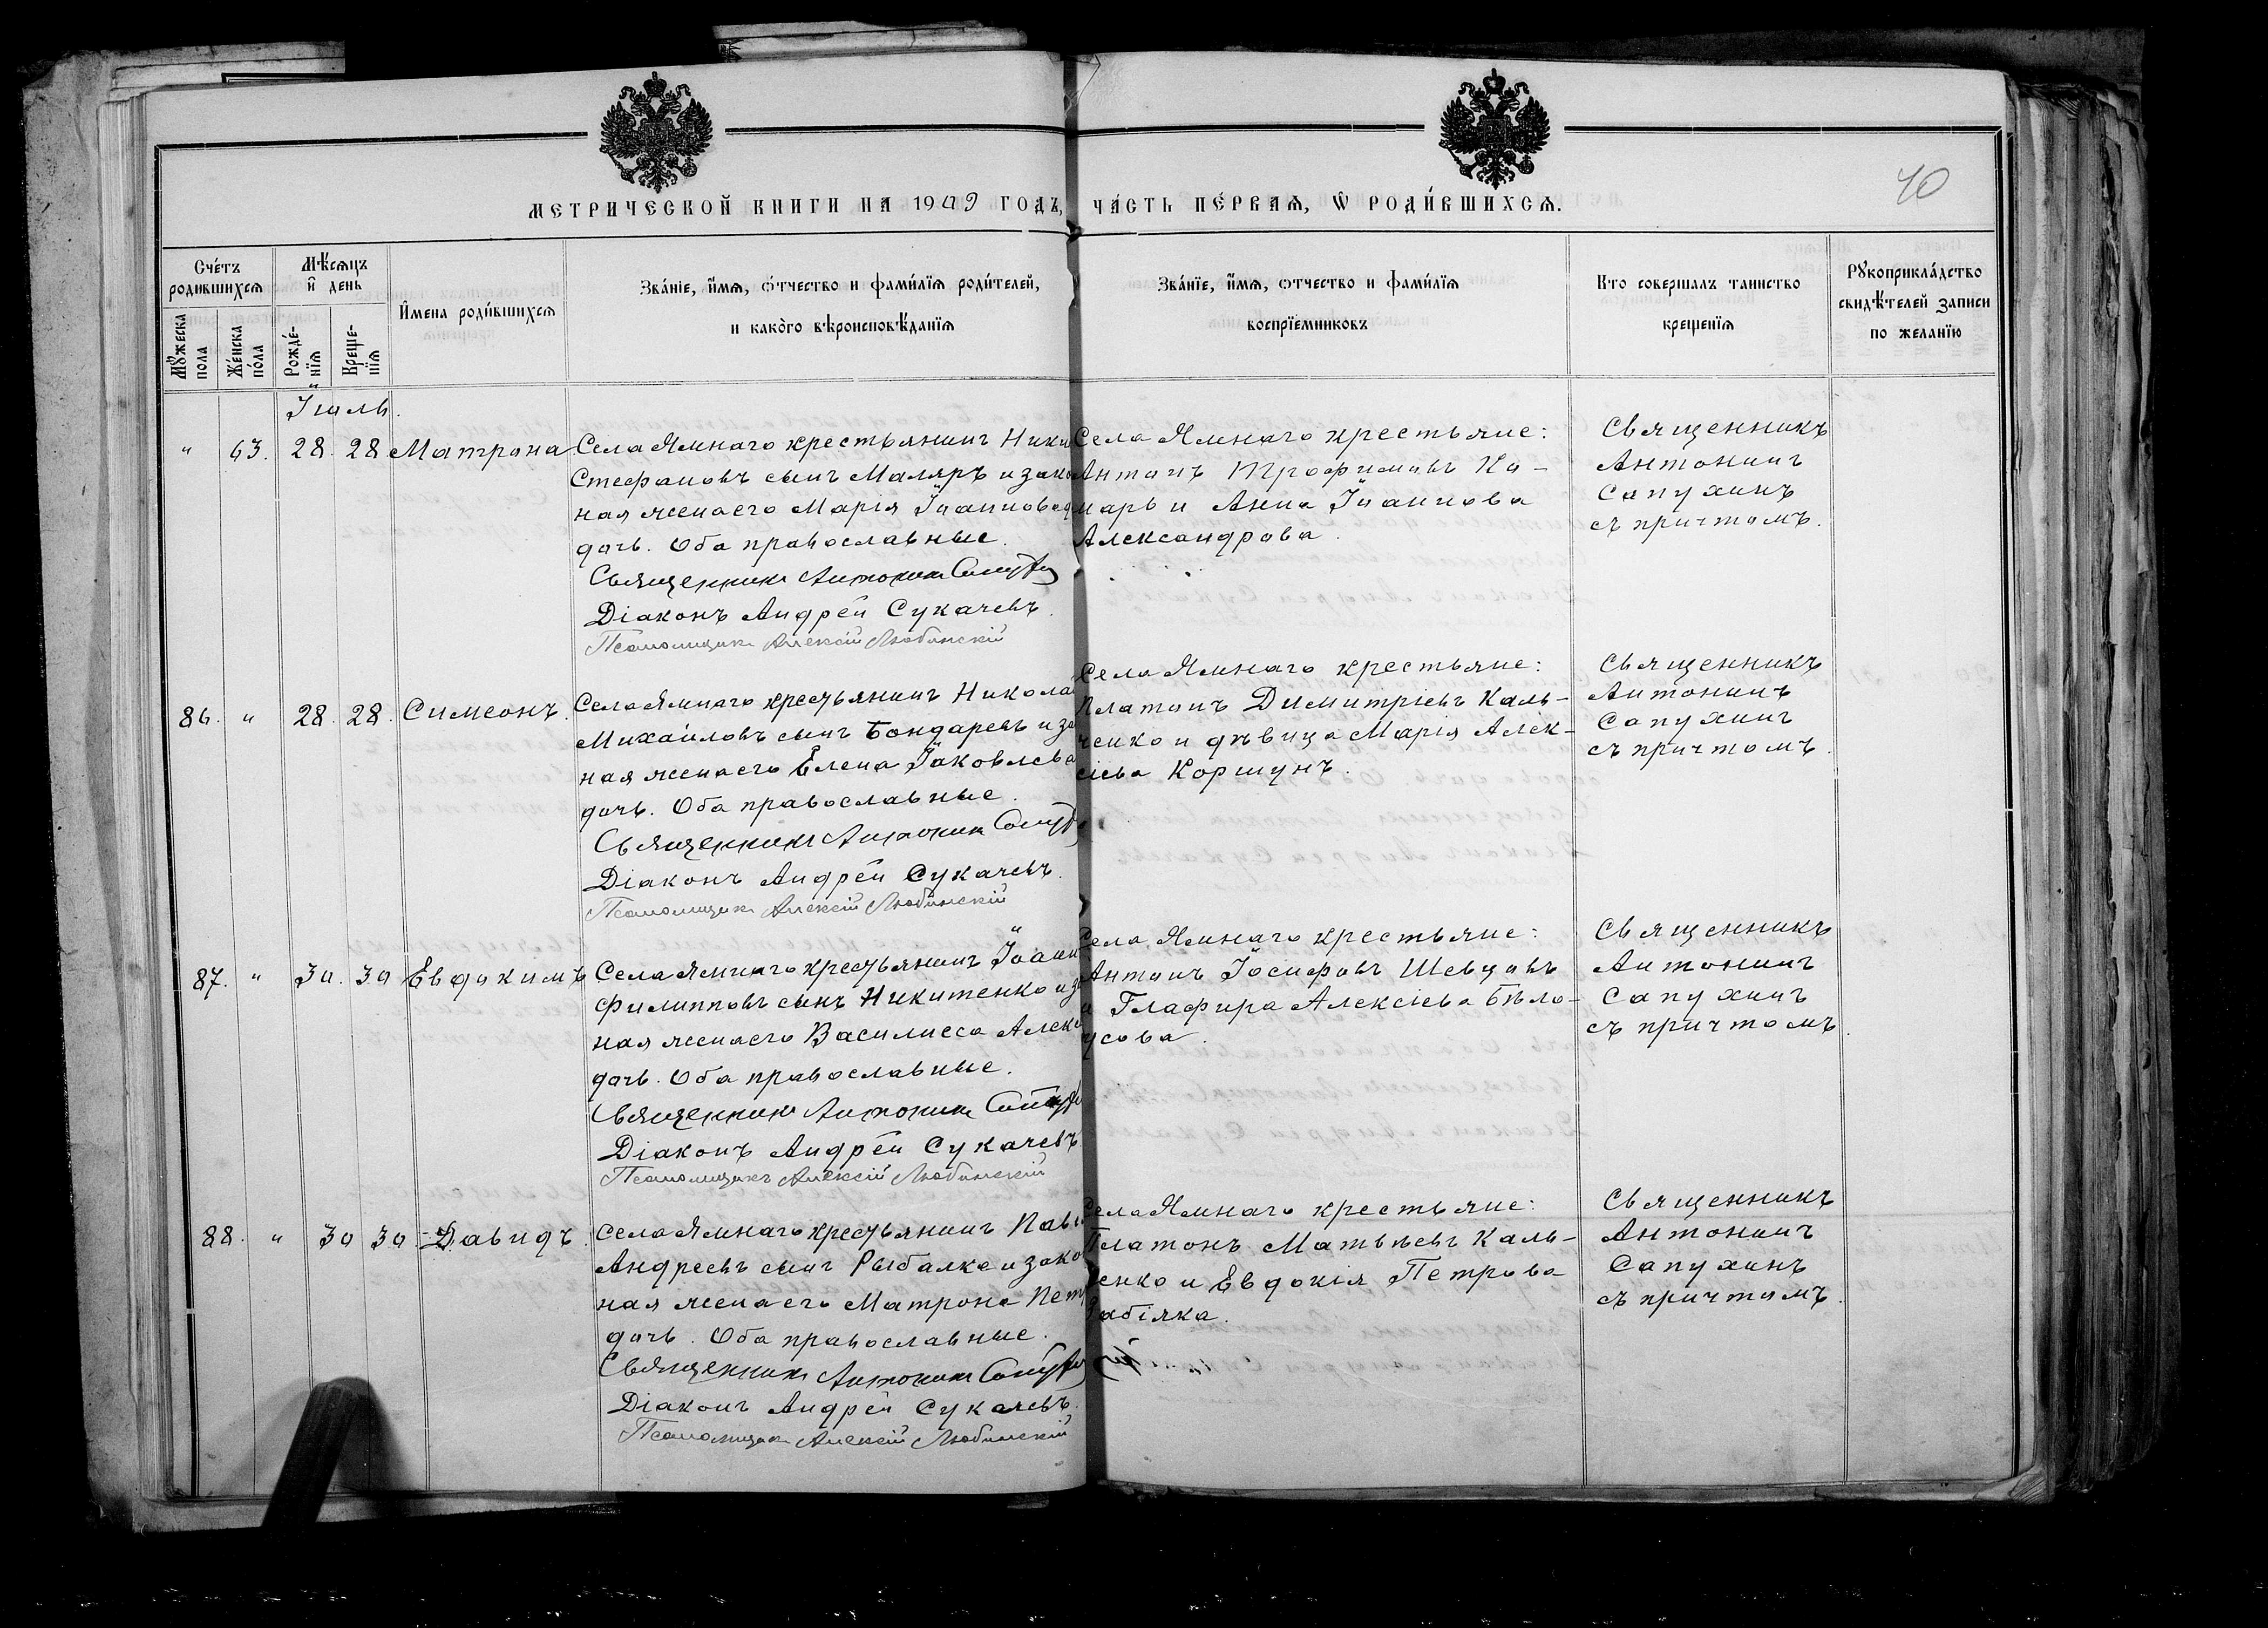 40
МЕТРИЧЕСКОЙ КНИГИ НА 1909 ГОДЪ, ЧА́СТЬ ПЕ́РВАѦ, Ѡ҆ РОДИ́ВШИХСѦ.
Сче́тъ родившихсѧ
Мꙋ́жеска пола
Же́нска по́ла
Мѣ́сѧцъ и҆ день
Рожде́-нїѧ
Креще-нїѧ
И҆мена роди́вшихсѧ
Зва́нїе, и҆́мѧ, ѻ҆́тчество и фами́лїѧ роди́телей,
и како́го вѣроисповѣ́данїѧ
Зва́нїе, и҆́мѧ, ѻтчество и фами́лїѧ
воспрїемниковъ
Кто совершалъ таинство
крещенїѧ
Рꙋкоприкла́дство
свидѣ́телей записи
по желанїю
Іюль.
" 63. 28. 28 Матрона
Села Ямнаго крестьянинъ Ники
Стефановъ сынъ Маляръ и зако
ная жена его Марія Іоаннова
дочь. Оба православные.
Священникъ Антонинъ
Діаконъ Андрей Сукачевъ.
Псаломщикъ Алексій Любинскій
Села Ямнаго крестьяне:
Антонъ Трофимовъ Ко-
марь и Анна Іоаннова
Александрова.
Священникъ
Антонинъ
Сапухинъ
съ причтомъ.
86. " 28. 28. Симеонъ.
Села Ямнаго крестьянинъ Никола
Михайловъ сынъ Бондаревъ и за
ная жена его Елена Іаковлева
дочь. Оба православные.
Священникъ Антонинъ
Діаконъ Андрей Сукачевъ.
Псаломщикъ Алексій Любинскій
Села Ямнаго крестьяне:
Платонъ Димитріевъ Каль-
ченко и дѣвица Марія Алек-
сіева Коршунъ.
Священникъ
Антонинъ
Сапухинъ
съ причтомъ.
87. " 30. 30 Евдокимъ
Села Ямнаго крестьянинъ Іоанн
Филипповъ сынъ Никитенко и за
ная жена его Василисса Алекс
дочь. Оба православные.
Священникъ Антонинъ
Діаконъ Андрей Сукачевъ
Псаломщикъ Алексій Любинскій
Села Ямнаго крестьяне:
Антонъ Іосифовъ Шевцовъ
и Глафира Алексіева Бѣло-
усова.
Священникъ
Антонинъ
Сапухинъ
съ причтомъ.
88. " 30 30. Давидъ.
Села Ямнаго крестьянинъ Паве
Андреевъ сынъ Рыбалко и зако
ная жена его Матрона Пет
дочь. Оба православные.
Священникъ Антонинъ
Діаконъ Андрей Сукачевъ.
Псаломщикъ Алексій Любинскій
Села Ямнаго крестьяне:
Платонъ Матвѣевъ Каль-
ченко и Евдокія Петрова
Забіяка.
Священникъ
Антонинъ
Сапухинъ
съ причтомъ.